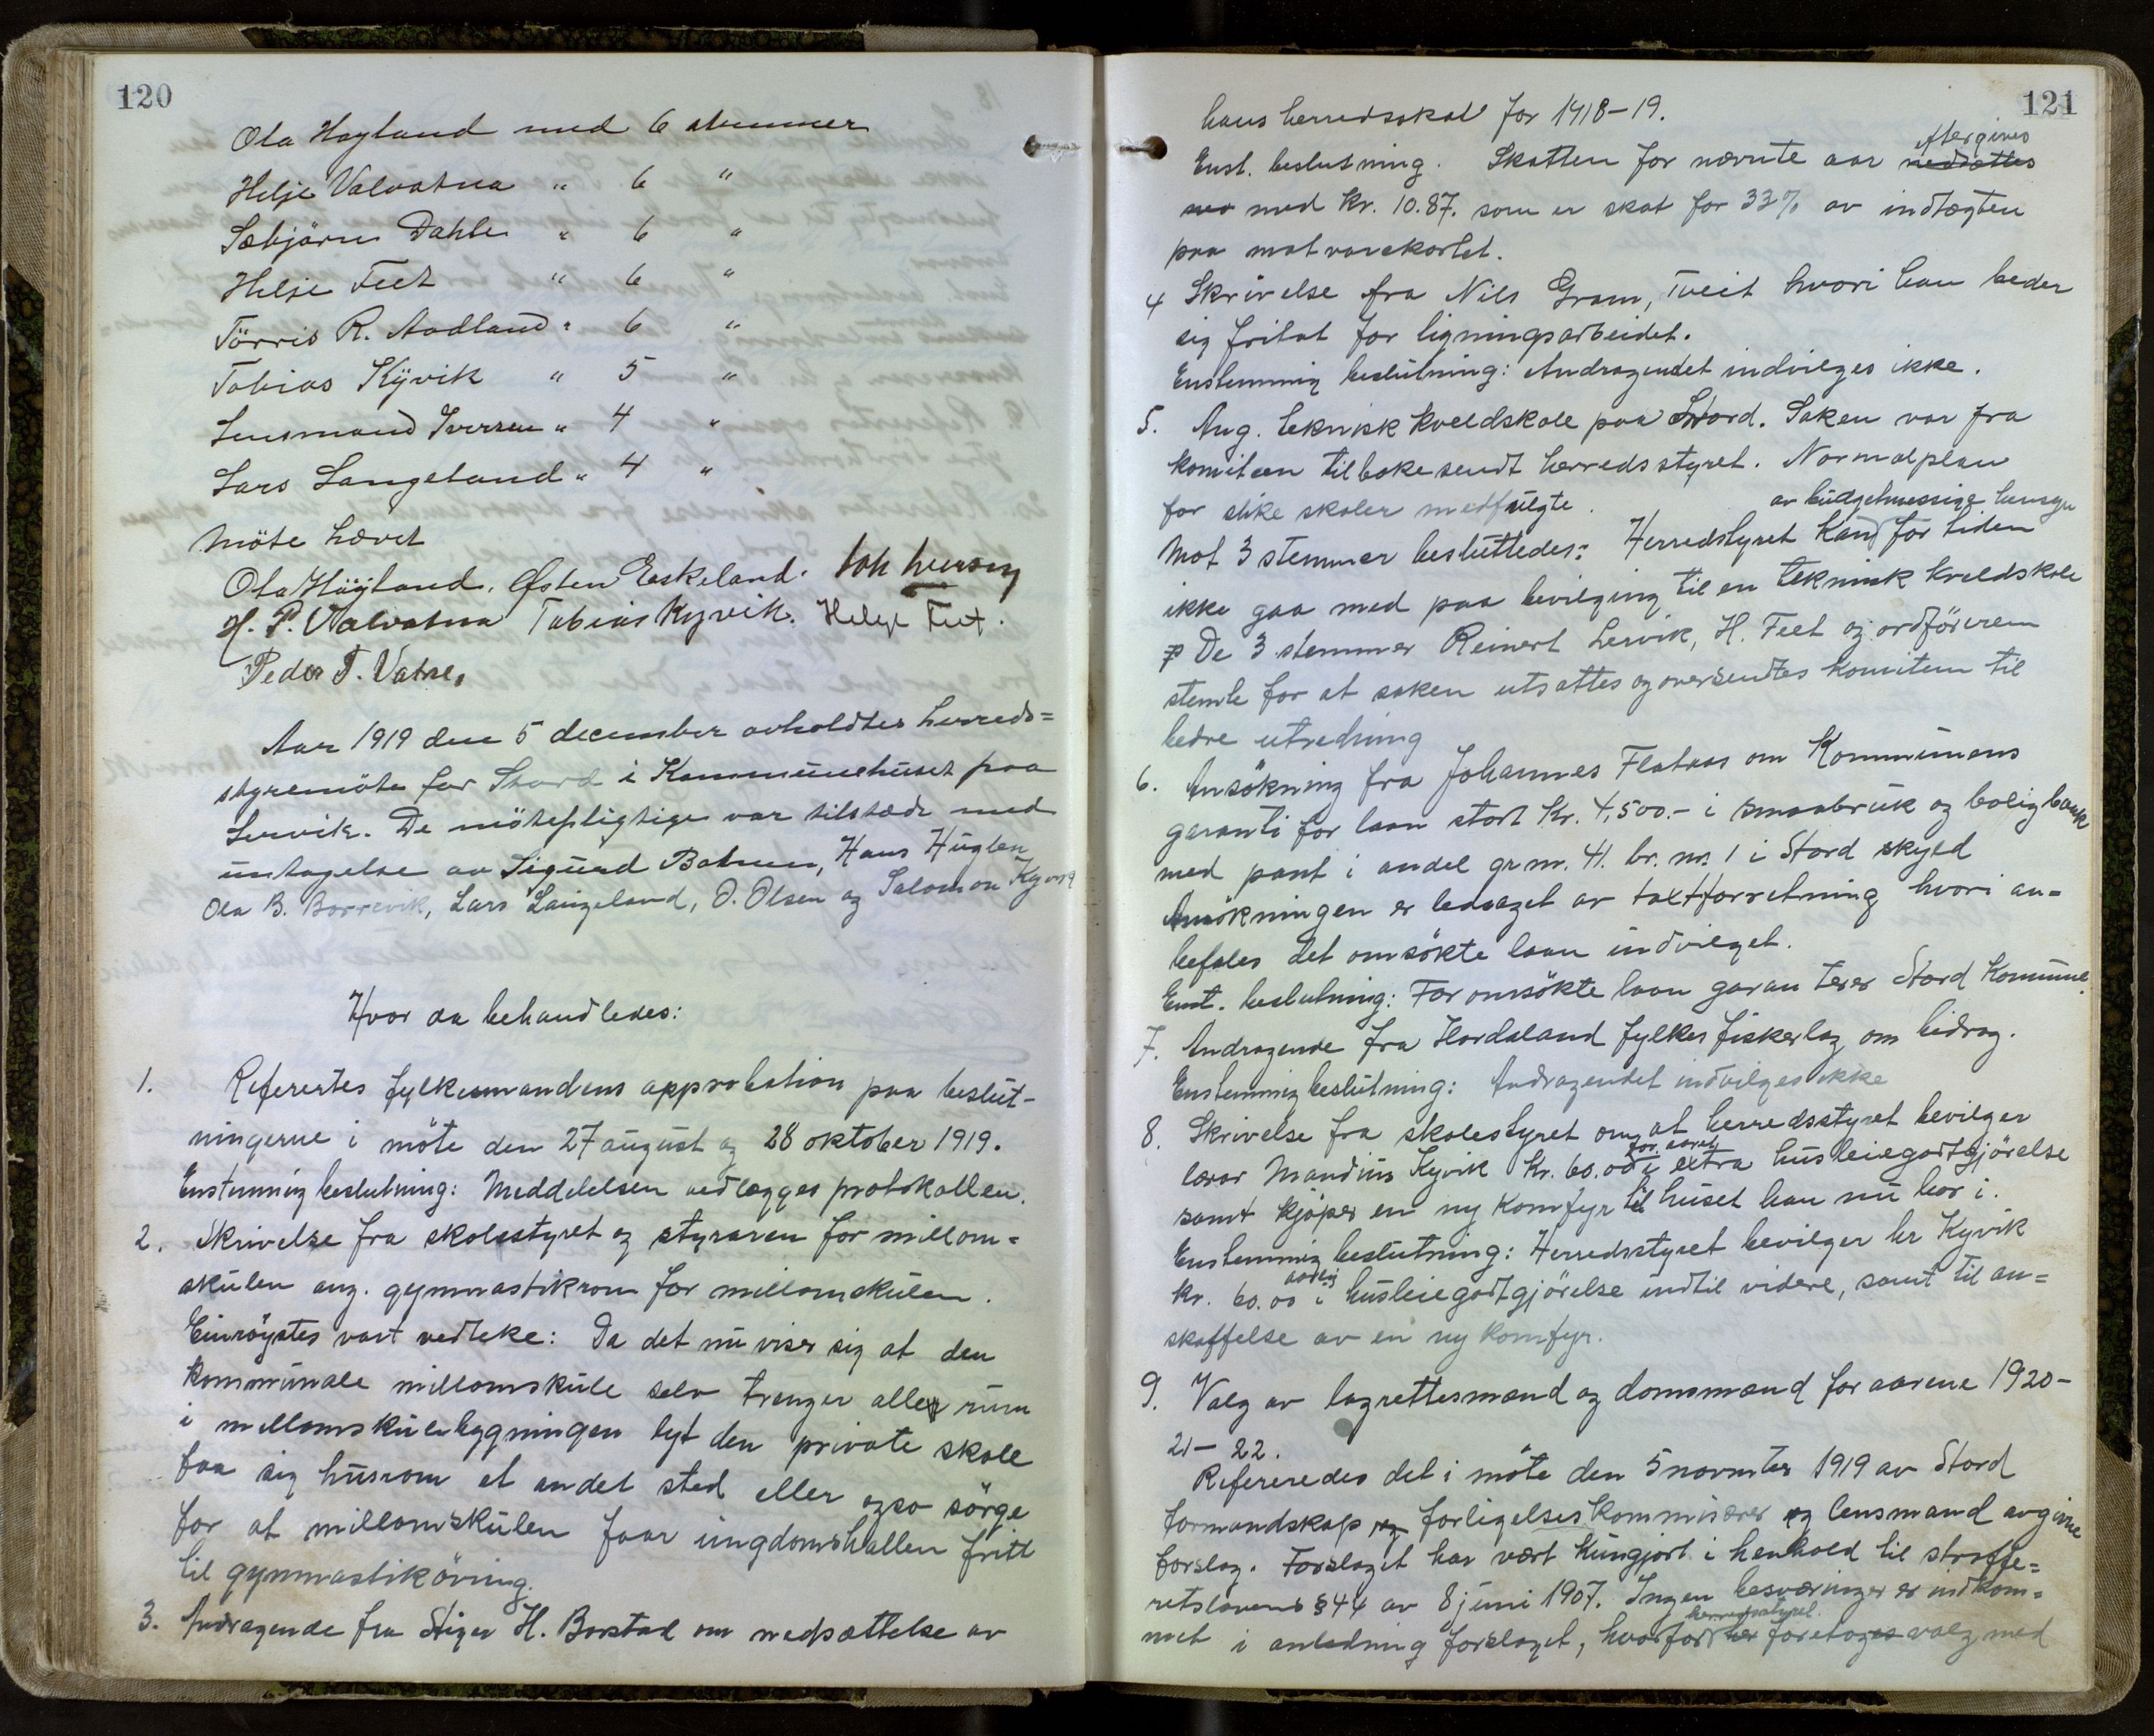 120
Ola Høyland med 6 stemmer
Helje Valvatna " 6 "
Sæbjørn Dahle " 6 "
Helje Feet " 6 "
Törris R. Aadland " 6 "
Tobias Kyvik " 5 "
Lensmand Iversen " 4 "
Lars Langeland " 4 "
Möte hævet
Ola Höyland. Østen Eskeland. Joh Iversen
H. P. Valvatna Tobias Kyvik. Helge Feet.
Peder T. Vatne.
Aar 1919 den 5 december avholdtes herreds=
styremöte for Stord i Kommunehuset paa
Lervik. De mötepligtige var tilstæde med
untagelse av Sigurd Batnen, Hans Huglen
Ola B. Borrevik, Lars Langeland, O. Olsen og Salomon Kyvik
Hvor da behandledes:
1. Refererstes fylkesmandens approbation paa beslut-
ningerne i möte den 27 august og 28 oktober 1919.
Enstemmig beslutning: Meddelelsen vedlægges protokollen.
2. Skrivelse fra skolestyret og styraren for millom=
skulen ang. gymnastikrom for millomskulen.
Einröystes vart vedteke: Da det nu viser sig at den
kommunale millomskule selv trenger alle rum
i millomskulebygningen lyt den private skole
faa sig husrom et andet sted eller ogso sörge
for at millomskulen faar ungdomshallen fritt
til gymnastiköving.
3. Andragende fra Stiger H. Borstad om nedsættelse av
121
hans herredsskat for 1918-19.
Enst. beslutning. Skatten for nævnte aar nedsættes eftergives
med kr. 10.87. som er skat for 33% av indtægten
paa matvarekortet.
4 Skrivelse fra Nils Gram, Tveit hvori han beder
sig fritat for ligningsarbeidet.
Enstemmig beslutning: Andragendet indvilges ikke.
5. Ang. teknisk kveldskole paa Stord. Saken var fra
komiteen tilbakesendt herredsstyret. Normalplan
for slike skoler medfulgte.
Mot 3 stemmer besluttedes: Herredstyret kan av budgetmessige hensyn for tiden
ikke gaa med paa bevilging til en teknisk kveldskole
De 3 stemmer Reinert Lervik, H. Feet og ordföreren
stemte for at saken utsattes og oversendtes komiteen til
bedre utredning
6. Ansökning fra Johannes Flataas om Kommunens
garanti for laan stort Kr. 4,500.- i smaabruk og boligbank
med pant i andel gr.nr. 41. br. nr. 1 i Stord skyld
Ansökningen er ledsaget av taxtforretning hvori an=
befales det omsökte laan indvilget.
Enst. beslutning: For omsökte laan garanterer Stord Kommune.
7. Andragende fra Hordaland fylkes fiskerlag om bidrag.
Enstemmig beslutning: Andragendet indvilges ikke
8. Skrivelse fra skolestyret om at herredsstyret bevilger
lærer Mandius Kyvik Kr. 60.00 for aaret i extra husleiegodtgjörelse
samt kjöper en ny Komfyr til huset han nu bor i.
Enstemmig beslutning: Herredsstyret bevilger hr Kyvik
kr. 60.00 aarlig i husleiegodtgjörelse indtil videre, samt til an=
skaffelse av en ny komfyr.
9. Valg av lagrettesmænd og domsmænd for aarene 1920-
21- 22.
Refereredes det i möte den 5 novmber 1919 av Stord
formandskap og forligelseskommisærer og lensmand avgivne
forslag. Forslaget har vært kungjort i henhold til straffe=
retslovens § 44 av 8 juni 1907. Ingen besværinger er indkom=
met i anledning forslaget, hvorfor herredsstyret her foretoges valg med